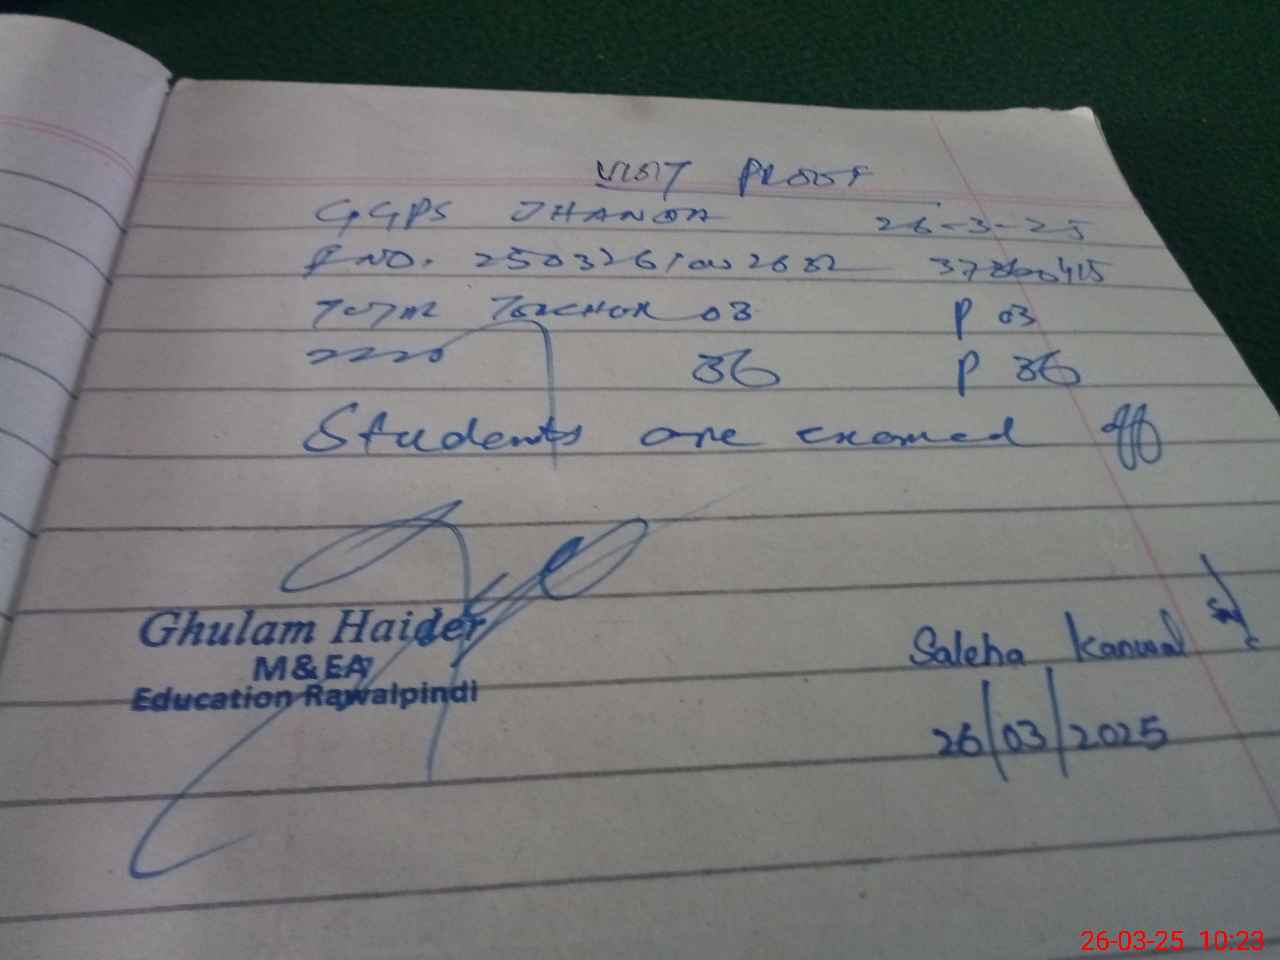 VISIT PROOF
GGPS JHANDA 26-3-25
NO.
TOTAL TEACHER 03 P 03
36 P 36
Students are examed off
Ghulam Haider
M&EA
Education Rawalpindi
Saleha Kanwal
26/03/2025
26-03-25 10:23